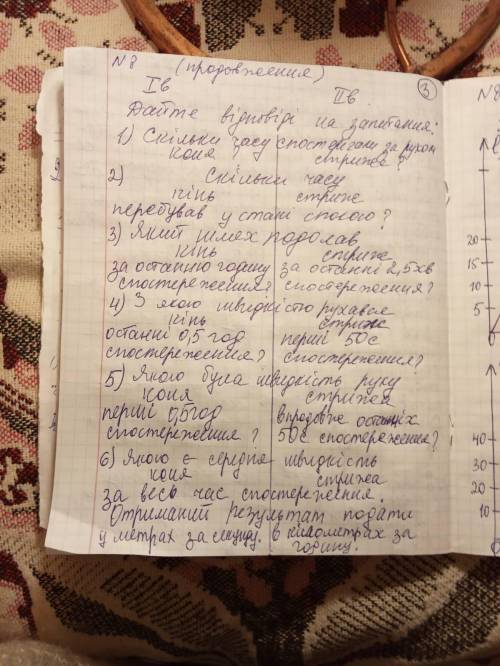 N8 (продовження) 3
Iв IIв
Дайте відповіді на запитання:
1) Скільки часу спостерігали за рухом
коня? стрижа?
2) Скільки часу
кінь стриж
перебував у стані спокою?
3) Який шлях подолав
кінь стриж
за останню годину за останні 2,5хв
спостереження? спостереження?
4) З якою швидкістю рухався
кінь стриж
останні 0,5 год перші 50с
спостереження? спостереження?
5) Якою була швидкість руху
коня стрижа
перші 0,5год впродовж останніх
спостереження? 50с спостереження?
6) Якою є середня швидкість
коня стрижа
за весь час спостереження.
Отриманий результат подати
у метрах за секунду. в кілометрах за
годину.
N8
20
15
10
5
0
40
30
20
10